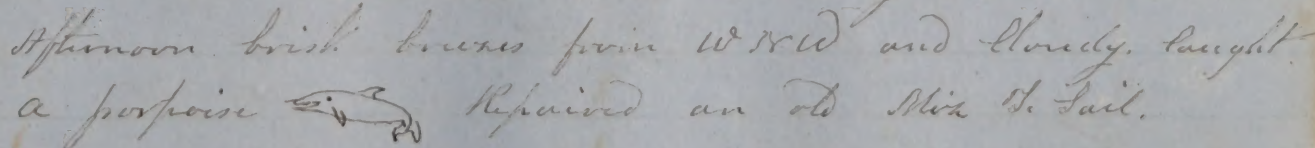 Afternoon brisk breezes from WNW and Cloudy. Caught
a porpoise Repaired an old Miz T. Sail.